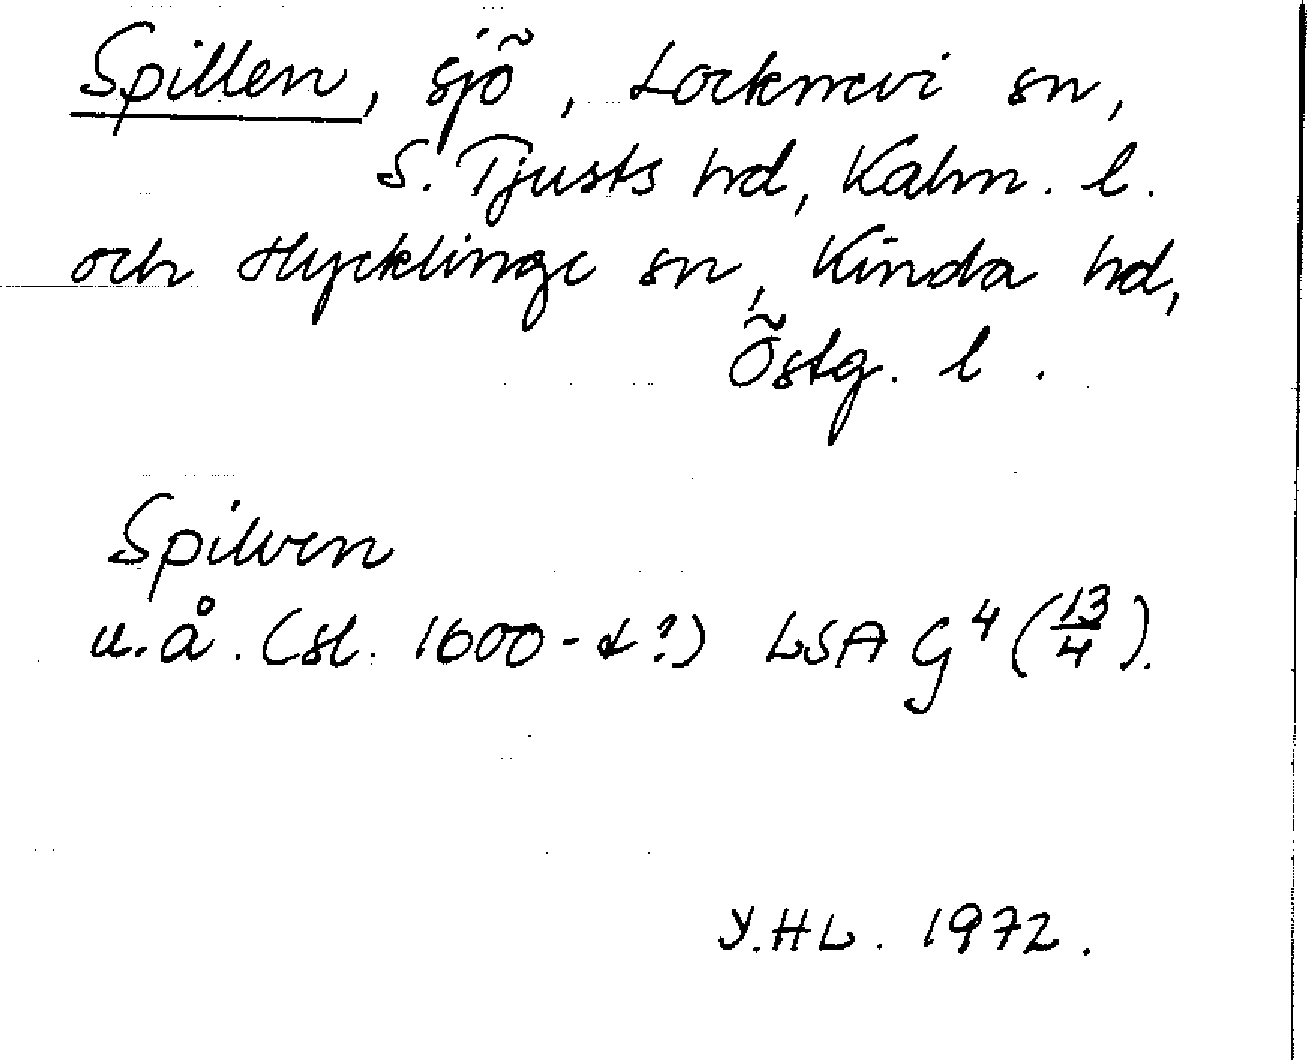 Spillen, sjö, Locknevi sn,
S. Tjusts hd, Kalm. l.
och Hycklinge sn, Kinda hd,
Östg. l.
Spilven
u.å. (sl. 1600-t?) LSA G⁴ (13/4).
Y.HL. 1972.